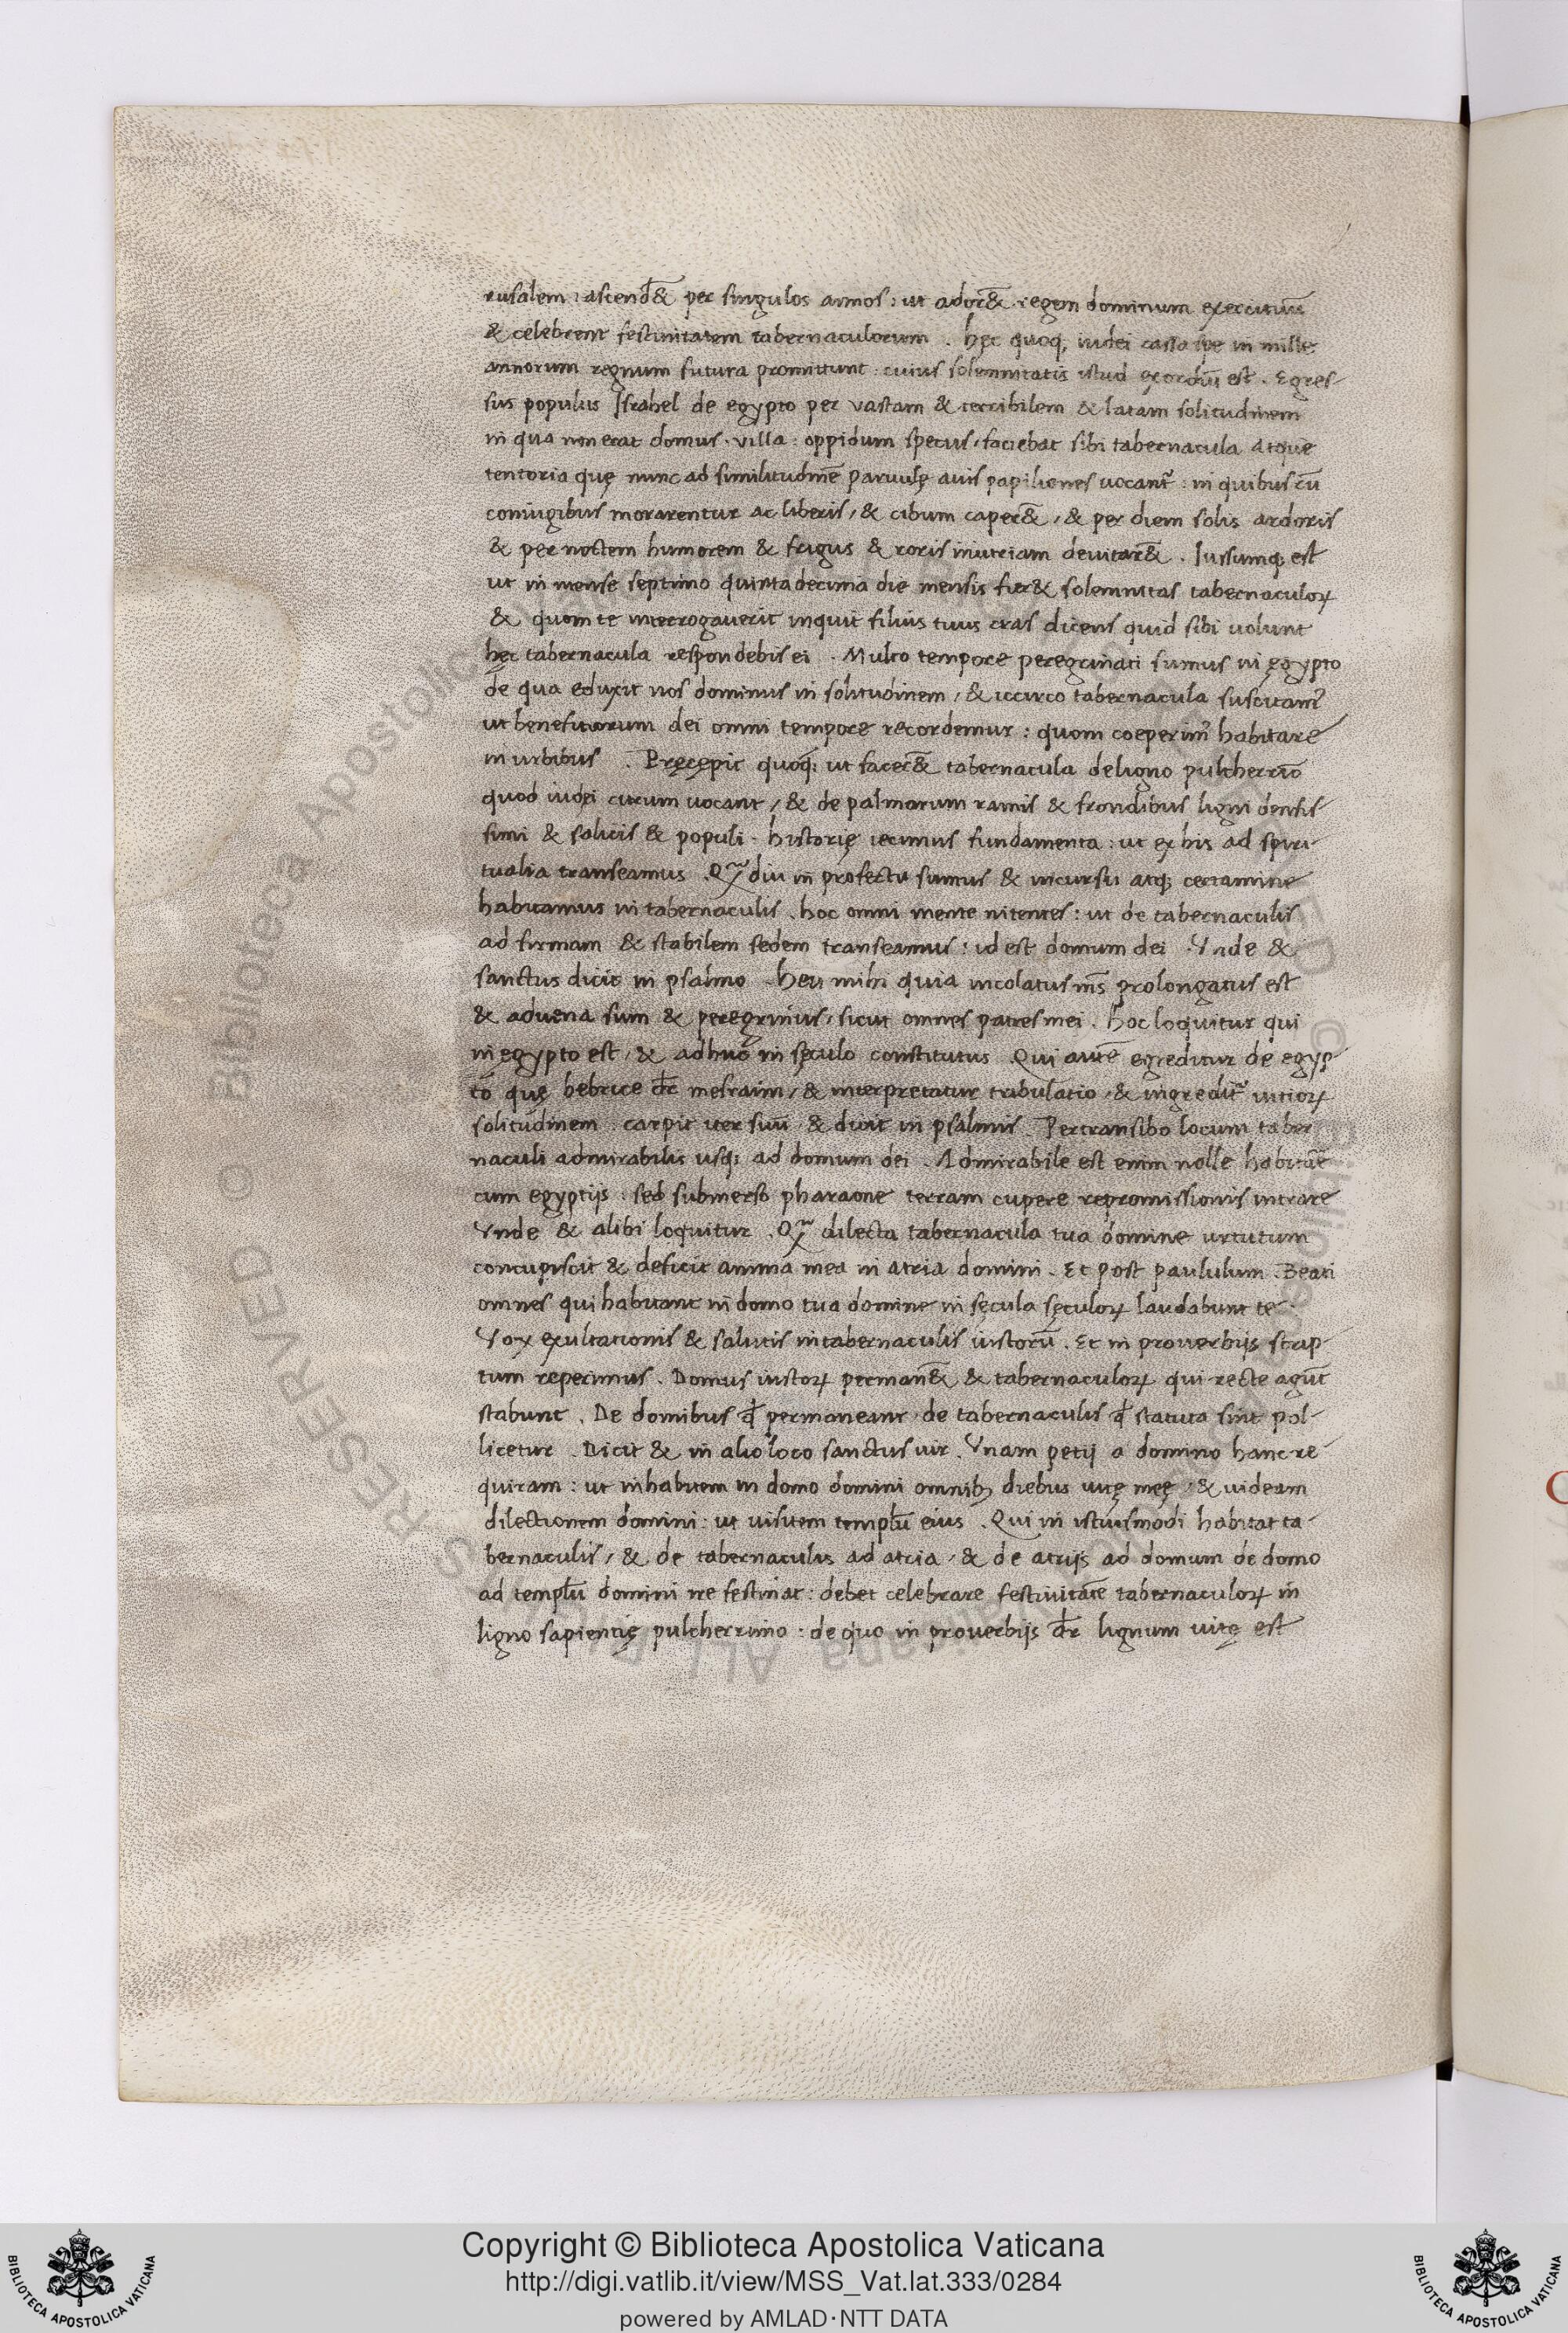 rusalem : ascend̄& per singulos annos : ut ador̄& regem dominum exercituū
& celebrent festiuitatem tabernaculorum . hęc quoq; iudei cassa spe in mille
annorum regnum futura promittunt : cuius solemnitatis istud exordiū est . Egres-
sus populus Israhel de egypto per vastam & terribilem & latam solitudinem
in qua non erat domus . villa : oppidum specus , faciebat sibi tabernacula atque
tentoria quę nunc ad similitudinē paruulę auis papiliones uocant̄ : in quibus cū
coniugibus morarentur ac liberis , & cibum caper̄& , & per diem solis ardoris
& per noctem humorem & frigus & roris iniuriam deuitar̄& . Iussumq; est
ut in mense septimo quintadecima die mensis fier& solemnitas tabernaculoꝝ
& quom te interrogauerit inquit filius tuus cras dicens quid sibi uolunt
hęc tabernacula respondebis ei . Multo tempore peregrinati sumus in ęgypto
de qua eduxit nos dominus in solitudinem , & iccirco tabernacula suscitam᷒
ut beneficiorum dei omni tempore recordemur : quom coeperim᷒ habitare
in urbibus . Pręcępit quoq; ut facer̄& tabernacula de ligno pulcherrīo
quod iudęi citrum uocant , & de palmarum ramis & frondibus ligni densis
simi & salicis & populi . historię iecimus fundamenta : ut ex his ad spiri-
tualia transeamus . Qꝫ̄ diu in profectu sumus & in cursu atq; certamine
habitamus in tabernaculis . hoc omni mente nitentes : ut de tabernaculis
ad firmam & stabilem sedem transeamus : id est domum dei . Vnde &
sanctus dicit in psalmo . heu mihi quia incolatus m̄s prolongatus est
& aduena sum & peregrinus , sicut omnes patres mei . hoc loquitur qui
in ęgypto est , & adhuc in sęculo constitutus . Qui autē egreditur de egyp-
to quę hebrice dr̄ mesraim , & interpretatur tribulatio , & ingredit̄ uitioꝝ
solitudinem : carpit iter suū & dicit in psalmis . Pertransibo locum taber
naculi admirabilis usq; ad domum dei . Admirabile est enim nolle habitāē
cum egyptijs : sed submerso pharaone terram cupere repromissionis intrare
Vnde & alibi loquitur . Qꝫ̄ dilecta tabernacula tua domine uirtutum
concupiscit & deficit anima mea in atria domini . Et post paululum . Beati
omnes qui habitant in domo tua domine in sęcula sęculoꝝ laudabunt te .
Vox exultationis & salutis in tabernaculis iustorū . Et in prouerbijs scrip-
tum reperimus . Domus iustoꝝ perman̄& & tabernaculoꝝ qui recte agūt
stabunt . De domibus ꝙ permaneant , de tabernaculis ꝙ statuta sint pol-
licetur . Dicit & in alio loco sanctus uir . Vnam petij a domino hanc re-
quiram : ut inhabitem in domo domini omnibꝫ diebus uitę meę , & uideam
dilectionem domini : ut uisitem templū eius . Qui in istiusmodi habitat ta-
bernaculis , & de tabernaculis ad atria , & de atrijs ad domum de domo
ad templū domini ire festinat : debet celebrare festiuitatē tabernaculoꝝ in
ligno sapientię pulcherrimo : de quo in prouerbijs dr̄ lignum uitę est
RESERVED © Biblioteca Apostolica
Copyright © Biblioteca Apostolica Vaticana
http://digi.vatlib.it/view/MSS_Vat.lat.333/0284
powered by AMLAD·NTT DATA
BIBLIOTECA APOSTOLICA VATICANA
BIBLIOTECA APOSTOLICA VATICANA